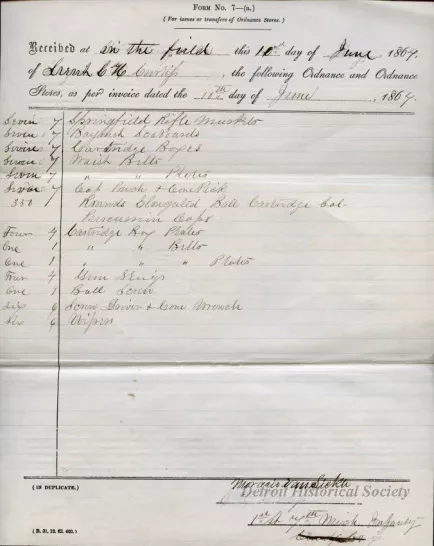 FORM No. 7—(a.)
(For issues or transfers of Ordnance Stores.)
Received at in the field this 10th day of June, 1864
of Lieut C H Curtiss, the following Ordnance and Ordnance
Stores, as per invoice dated the 10th day of June, 1864.
Seven 7 Springfield Rifle Muskets
Seven 7 Bayonet Scabbards
Seven 7 Cartridge Boxes
Seven 7 Waist Belts
Seven 7 " " Plates
Seven 7 Cap Pouch & Cone Pick
350 Rounds Elongated Ball Cartridge Cal
Percussion Caps
Four 4 Cartridge Box Plates
One 1 " " Belts
One 1 " " " Plates
Four 4 Gun Slings
One 1 Ball Screw
Six 6 Screw Driver & Cone Wrench
Six 6 Wipers
(IN DUPLICATE.)
Detroit Historical Society
1st Lt Mich Infantry